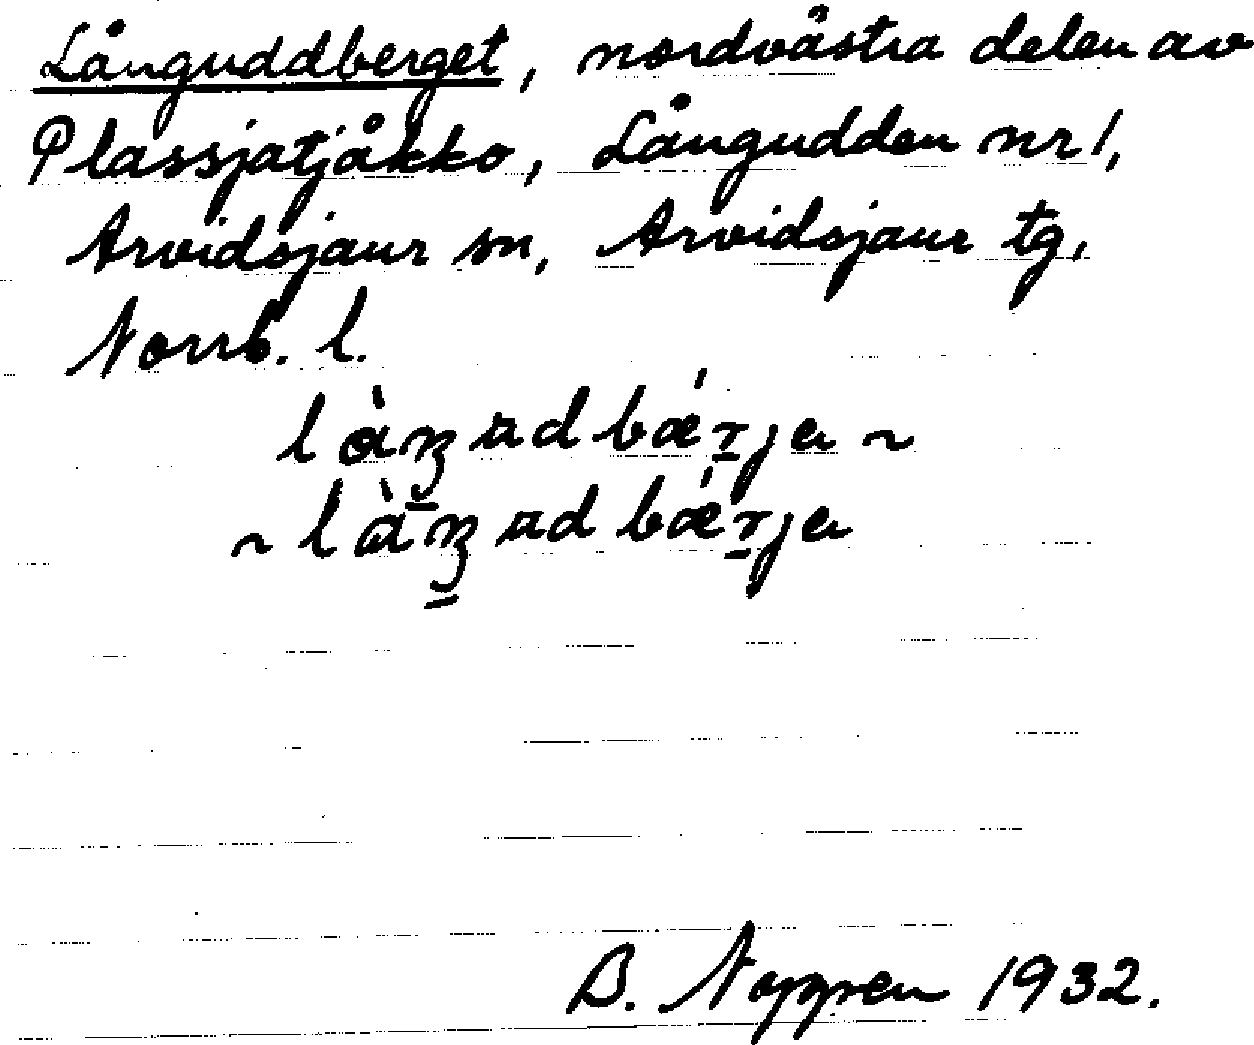 Långuddberget, nordvästra delen av
Plassjatjåkko, Långudden nr 1,
Arvidsjaur sn, Arvidsjaur tg,
Norrb. l.
làŋ̱udbǽṟja ~
~ là̱ŋ̱udbǽṟja
B. Noppen 1932.